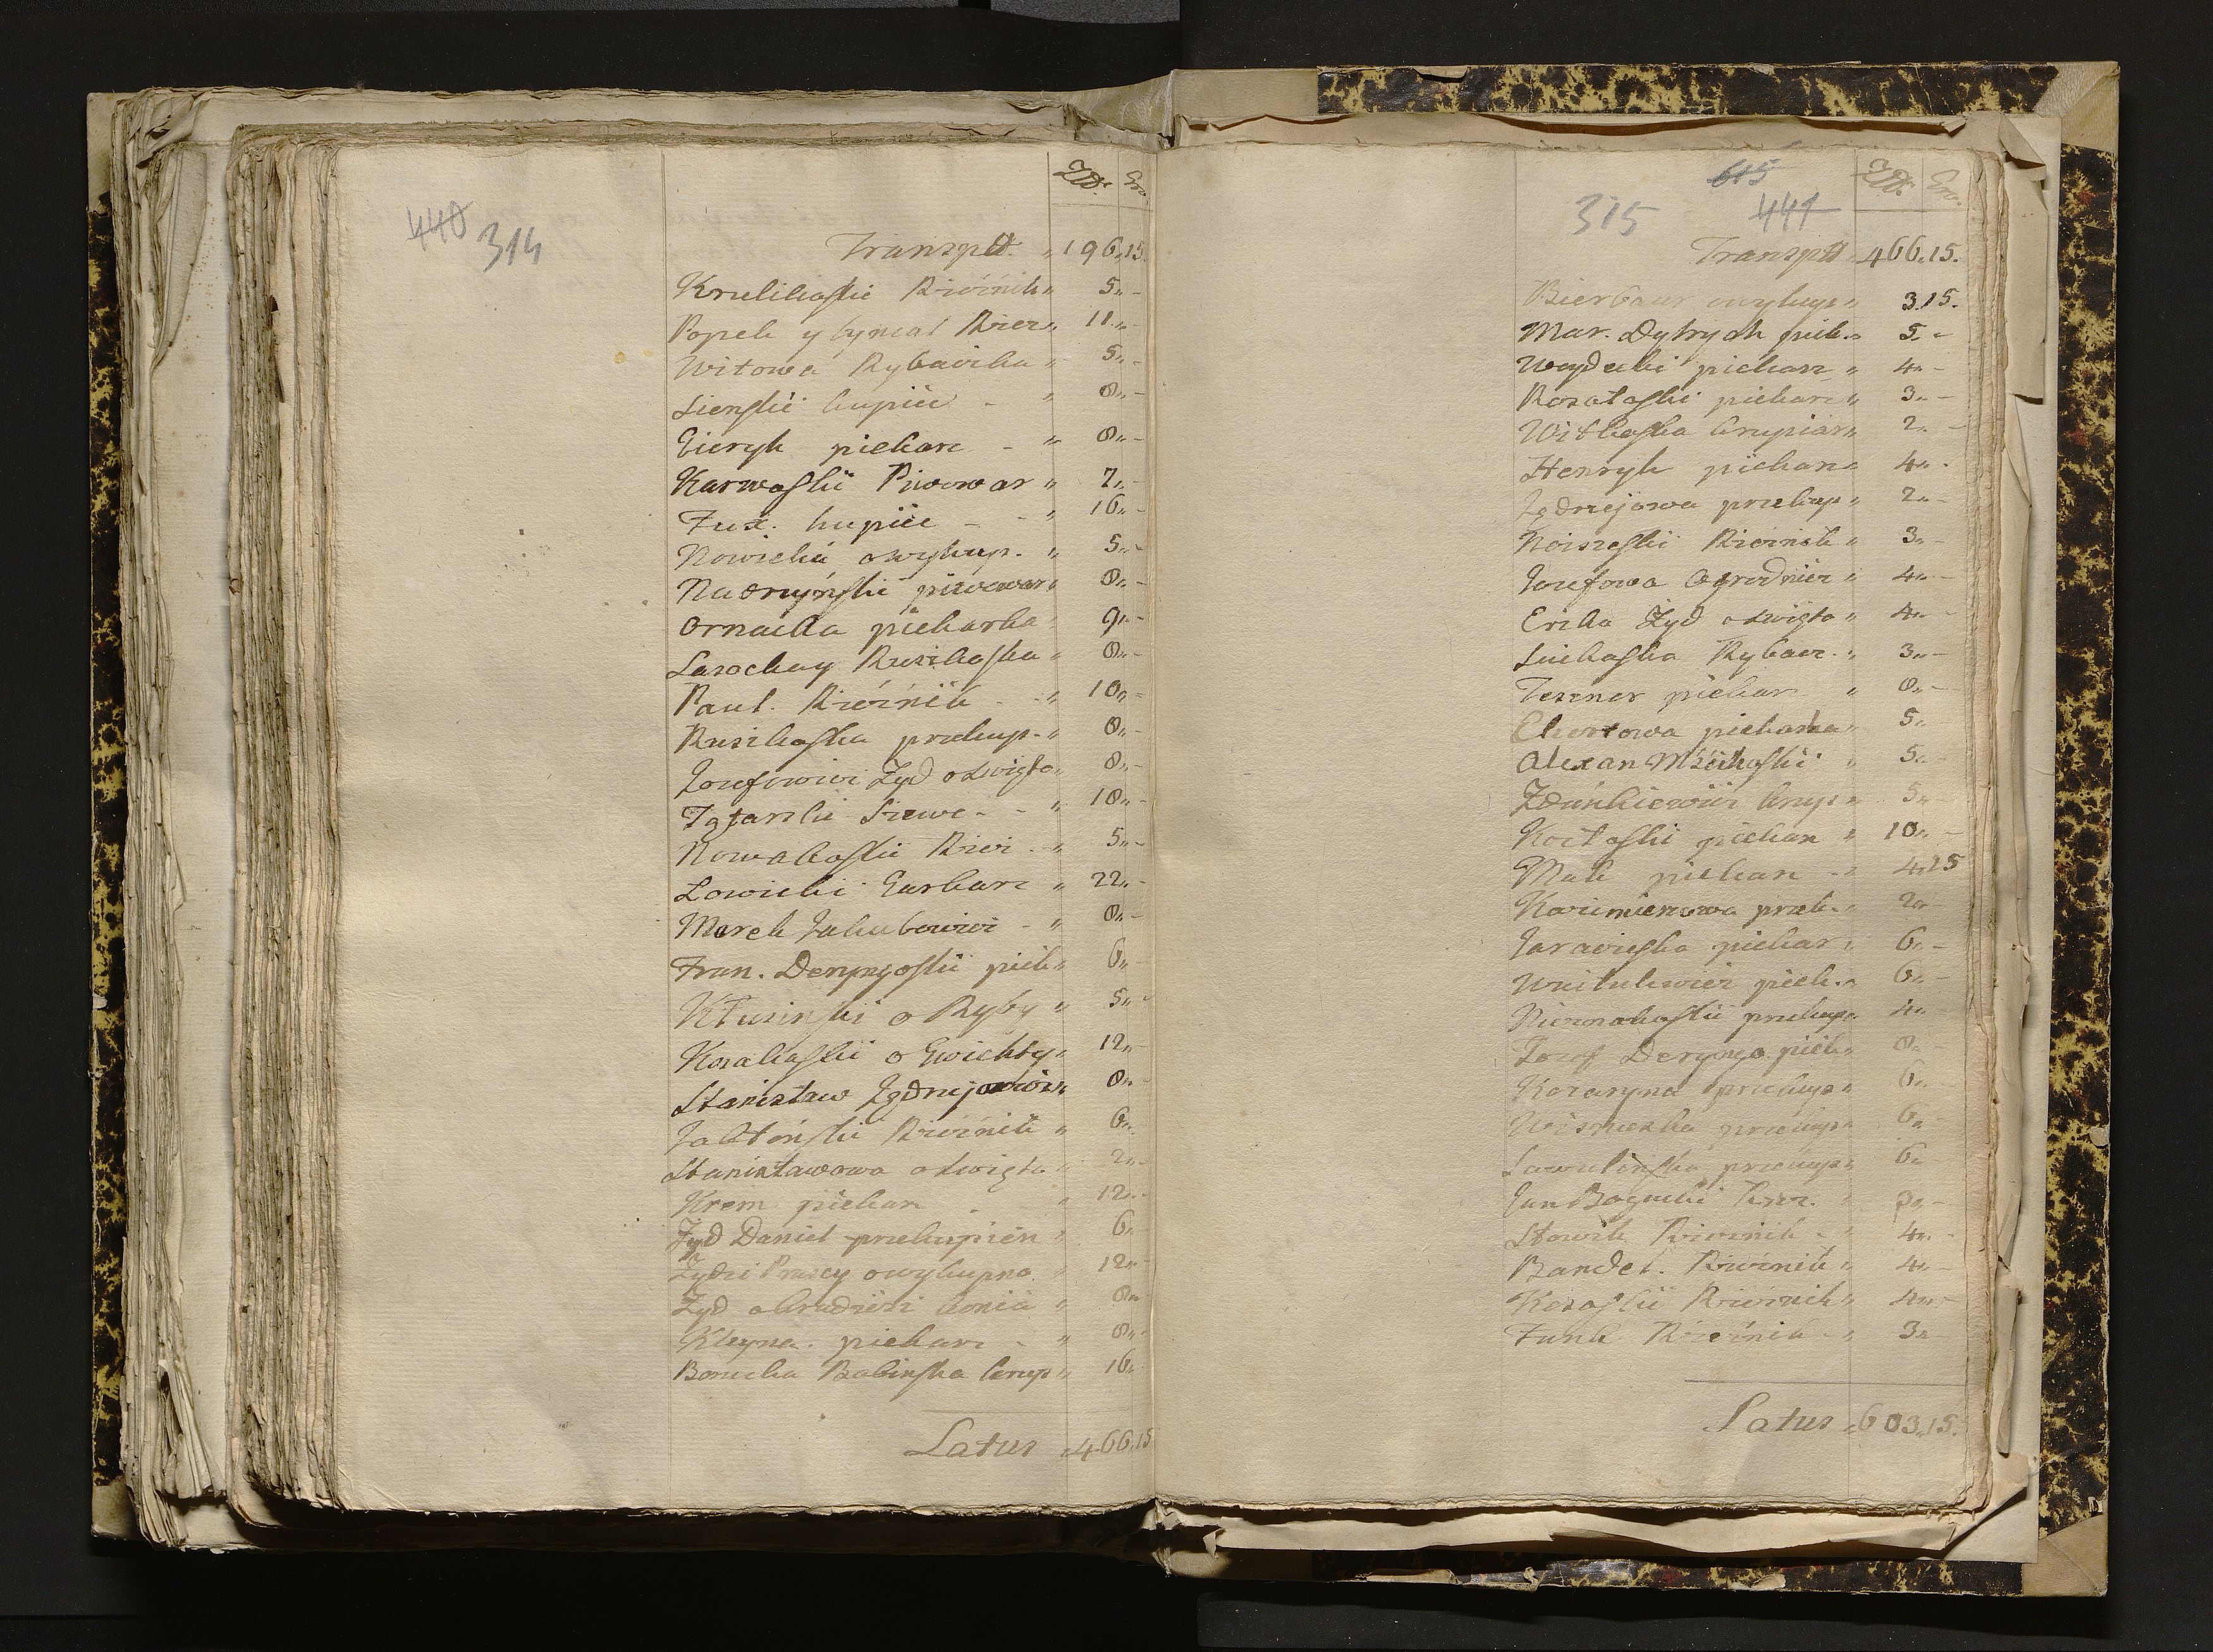 440 314
Złt. Gro.
Transprt. „ 196„15.
Krulikoskii Rzeźnik „ 5„-
Popek y Cyncal Rzez „ 11„-
Witowa Rybaczka „ 5„-
Sienskii kupiec - „ 8„-
Eieryk piekarz - „ 8„-
Karwoskii Piwowar „ 7„-
Fux. kupiic - - „ 16„-
Nowicka owykup. „ 5„-
Nadrzynskii piwowar „ 8„-
Ornacka piekarka „ 9„-
Sarochay Ruszkoska „ 8„-
Paul. Rzeźnik - „ 10„-
Ruszkoska przekup. „ 8„-
Jozefowicz Zyd odwięto „ 8„-
Tatarski Szewc - - „ 18„-
Nowakoskii Rzez - „ 5„-
Lowicki Garbarz „ 22„-
Marek Jakubowicz - „ 8„-
Fran. Deryngoskii piek „ 6„-
Kłusinskii o Ryby „ 5„-
Kozakoskii o Gwichty „ 12„-
Stanisław Jędrzejowicz „ 8„-
Jabłoński Rzeźnik „ 6„-
Stanisławowa odwięto „ 2„-
Krem piekarz - „ 12„-
Zyd Daniel przekupień „ 6„-
Zydzi Pruscy owykupno „ 12„-
Zyd okradziez konia „ 8„-
Kleyna. piekarz - „ 8„-
Borucka Babinska krup „ 16„
Latus „ 466„15
615
315 441
Złt. Gro.
Transprt „ 466„15.
Bierbaur owykup „ 3.15.
Mar. Dytrych piek. „ 5„-
Woydecki piekarz „ 4„-
Rosatoskii piekarz „ 3„-
Witkoska krupiar „ 2„-
Henryk piekarz „ 4„-
Jędrzejowa przekup „ 2„-
Noiszeskii Rzeźnik „ 3„-
Jozefowa Ogrodnicz „ 4„-
Ericka Zyd odwięto „ 4„-
Suikoska Rybacz. „ 3„-
Teszner piekarz „ 8„-
Elertowa piekarka „ 5„-
Alexan Mścichoskii „ 5„-
Zdunkiewicz krup „ 5„-
Koctoskii piekarz „ 10„-
Mak piekarz - „ 4„15
Kazimierzowa przek. „ 2„-
Jarawieska piekar „ 6„-
Wnitulewicz piek. „ 6„-
Niewiadoskii przekup „ 4„
Jozef Deryngo. piek „ 8„-
Katarzyna przekup „ 6„-
Woiszneska przekup „ 6„-
Sawelinska przekup „ 6„-
Jan Bogucki krzez. „ 3„-
Słowik Rzeźnik - „ 4„-
Bandel. Rzeźnik „ 4„-
Kozoskii Rzeźnik „ 4„-
Funk Rzeźnik - „ 3„-
Latus „ 603„15.